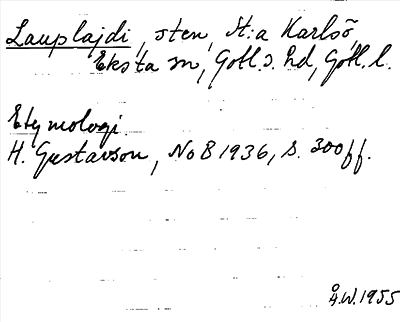 Lauplajdi, sten, St:a Karlsö,
Eksta sn, Gotl.s. hd, Gotl. l.
Etymologi.
H. Gustavson, NoB 1936, s. 300 ff.
Å.W. 1955